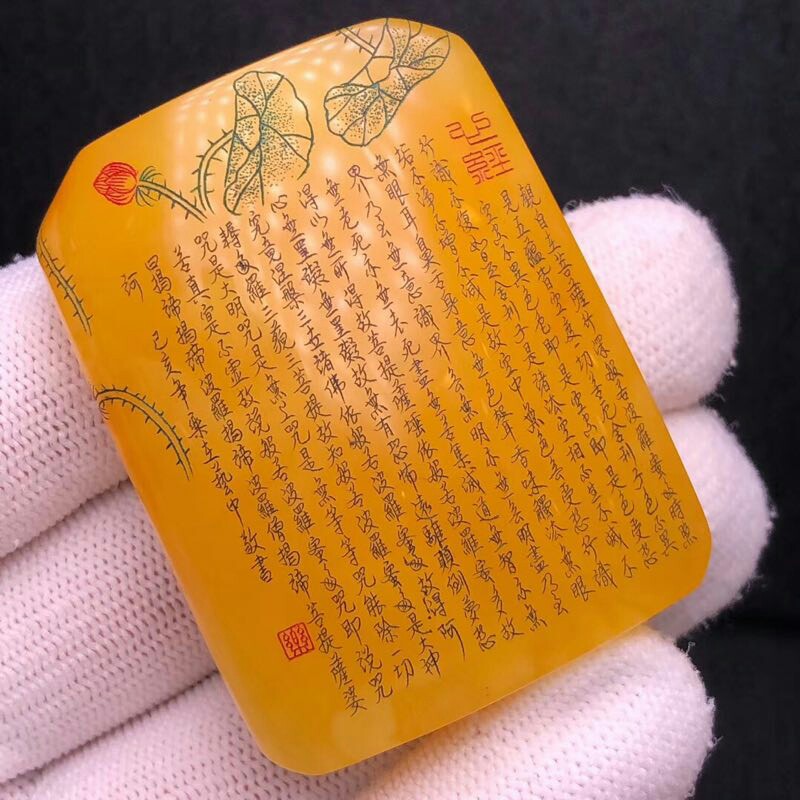 心經
觀自在菩薩行深般若波羅蜜多時照
見五蘊皆空度一切苦厄舍利子色不異
空空不異色色即是空空即是色受想
行識亦復如是舍利子是諸法空相不生不滅不
垢不淨不增不減是故空中無色無受想行識
無眼耳鼻舌身意無色聲香味觸法無眼
界乃至無意識界無無明亦無無明盡乃至
無老死亦無老死盡無苦集滅道無智亦無
得以無所得故菩提薩埵依般若波羅蜜多故
心無罣礙無罣礙故無有恐怖遠離顛倒夢想
究竟涅槃三世諸佛依般若波羅蜜多故得阿
耨多羅三藐三菩提故知般若波羅蜜多是大神
咒是大明咒是無上咒是無等等咒能除一切
苦真實不虛故說般若波羅蜜多咒即說咒
曰揭諦揭諦波羅揭諦波羅僧揭諦菩提薩婆
訶
己亥年樂立藝中敬書